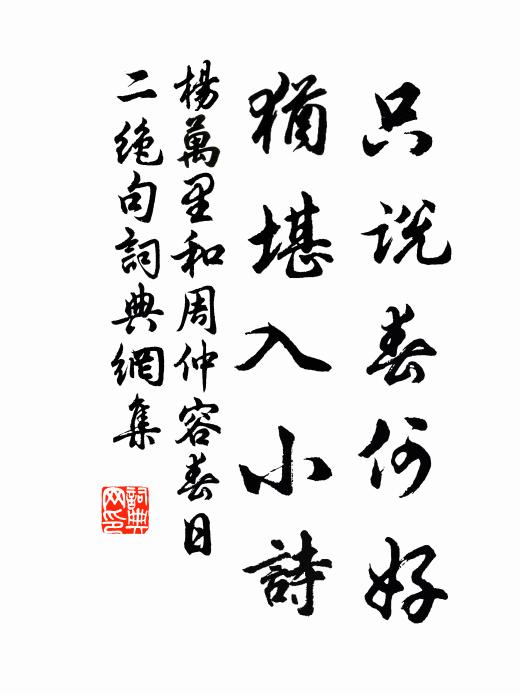 只说春何好
猶堪入小詩
楊萬里和周仲容春日
二绝句詞典網集
詞典
网印